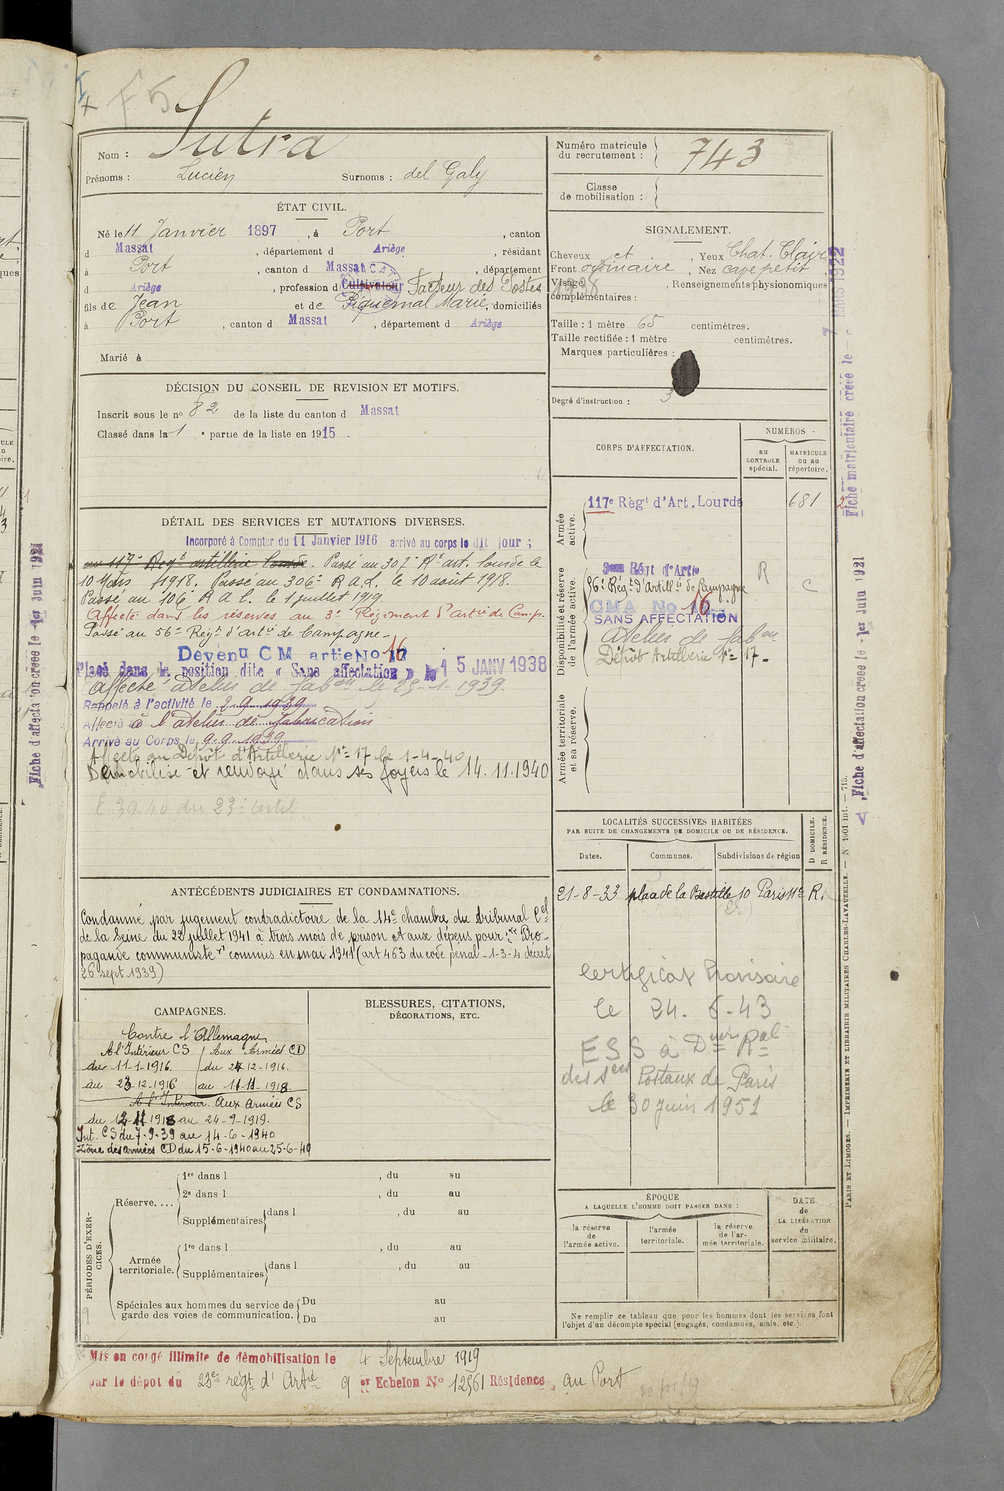 F5
Sutra
Nom :
Prénoms : Lucien Surnoms : del Galy
ÉTAT CIVIL.
Né le 11 Janvier 1897, à Port, canton
d Massat, département d Ariège, résidant
à Port, canton d Massat, département
d Ariège, profession d Cultivateur Facteur des Postes
fils de Jean et de Piquemal Marie, domiciliés
à Port, canton d Massat, département d Ariège
Marié à
DÉCISION DU CONSEIL DE REVISION ET MOTIFS.
Inscrit sous le nº 82 de la liste du canton d Massat
Classé dans la 1 e partie de la liste en 1915.
DÉTAIL DES SERVICES ET MUTATIONS DIVERSES.
Incorporé à Compter du 11 Janvier 1916 arrivé au corps le dit jour ;
au 117e Rég artillerie lourde. Passé au 307e Rt art. lourde le
10 Mars 1918. Passé au 306e R.A.L. le 10 août 1918.
Passé au 106e R A L. le 1 juillet 1919.
Affecté dans les réserves au 3e Régiment d'artie de Camp.
Passé au 56e Régt d'artie de Campagne.
Devenu C M artie No 16
Placé dans la position dite « Sans affectation » le 15 JANV 1938
Affecté atelier de fabon le 23-1-1939
Rappelé à l'activité le 7.9.1939
Affecté à l'atelier de fabrication
Arrivé au Corps le 9.9.1939
Affecté au Dépôt d'Artillerie No 17 le 1-4-40
Démobilisé et renvoyé dans ses foyers le 14.11.1940
ANTÉCÉDENTS JUDICIAIRES ET CONDAMNATIONS.
Condamné par jugement contradictoire de la 14e chambre du tribunal Cel
de la Seine du 22 juillet 1941 à trois mois de prison et aux dépens pour : "Pro-
pagande communiste" commis en mai 1941 (art 463 du code pénal - 1-3-4 décret
26 sept 1939)
CAMPAGNES.
Contre l'Allemagne
A l'Intérieur CS Aux Armées CD
du 11-1-1916. du 24-12-1916.
au 23-12-1916 au 11-11-1918.
A l'Intérieur Aux Armées CS
du 12-11-1918 au 24-9-1919.
Int. CS du 7-9-39 au 14-6-1940
Zone des armées CD du 15-6-1940 au 25-6-40
BLESSURES, CITATIONS,
DÉCORATIONS, ETC.
PÉRIODES D'EXERCICES.
Réserve....
1re dans l , du au
2e dans l , du au
Supplémentaires dans l , du au
Armée territoriale.
1re dans l , du au
Supplémentaires dans l , du au
Spéciales aux hommes du service de garde des voies de communication.
Du au
Du au
Mis en congé illimité de démobilisation le 4 Septembre 1919
par le dépôt du 23e régt d'Artie 9 er Echelon No 12561 Résidence au Port
Numéro matricule du recrutement : 743
Classe de mobilisation :
SIGNALEMENT.
Cheveux et , Yeux Chat. Clair
Front ordinaire , Nez cave petit
Visage , Renseignements physionomiques
complémentaires :
Taille : 1 mètre 65 centimètres.
Taille rectifiée : 1 mètre centimètres.
Marques particulières :
Degré d'instruction : 3
CORPS D'AFFECTATION.
NUMÉROS
AU CONTROLE spécial.
MATRICULE OU AU répertoire.
Armée active.
117e Règt d'Art. Lourde 681
Disponibilité et réserve de l'armée active.
3me Régt d'Artie R
56e Régt d'Artillie de Campagne C
CMA No 16
SANS AFFECTATION
Atelier de fabon
Dépôt Artillerie No 17
Armée territoriale et sa réserve.
LOCALITÉS SUCCESSIVES HABITÉES
PAR SUITE DE CHANGEMENTS DE DOMICILE OU DE RÉSIDENCE.
Dates. Communes. Subdivisions de région
D DOMICILE. R RÉSIDENCE.
21-8-33 place de la Bastille 10 Paris 11e R.
Certificat Provisoire
le 24. 6-43
ESS à Dion Rale
des Sces Postaux de Paris
le 30 Juin 1951
ÉPOQUE
A LAQUELLE L'HOMME DOIT PASSER DANS :
la réserve de l'armée active.
l'armée territoriale.
la réserve de l'armée territoriale.
DATE de LA LIBÉRATION du service militaire.
Ne remplir ce tableau que pour les hommes dont les services font
l'objet d'un décompte spécial (engagés, condamnés, omis, etc.).
Fiche matriculaire créée le 7 MARS 1922
Fiche d'affectation créée le 1er Juin 1921
PARIS ET LIMOGES. — IMPRIMERIE ET LIBRAIRIE MILITAIRES CHARLES-LAVAUZELLE. — N 1001 int. — 715.
Fiche d'affectation créée le 1er Juin 1921